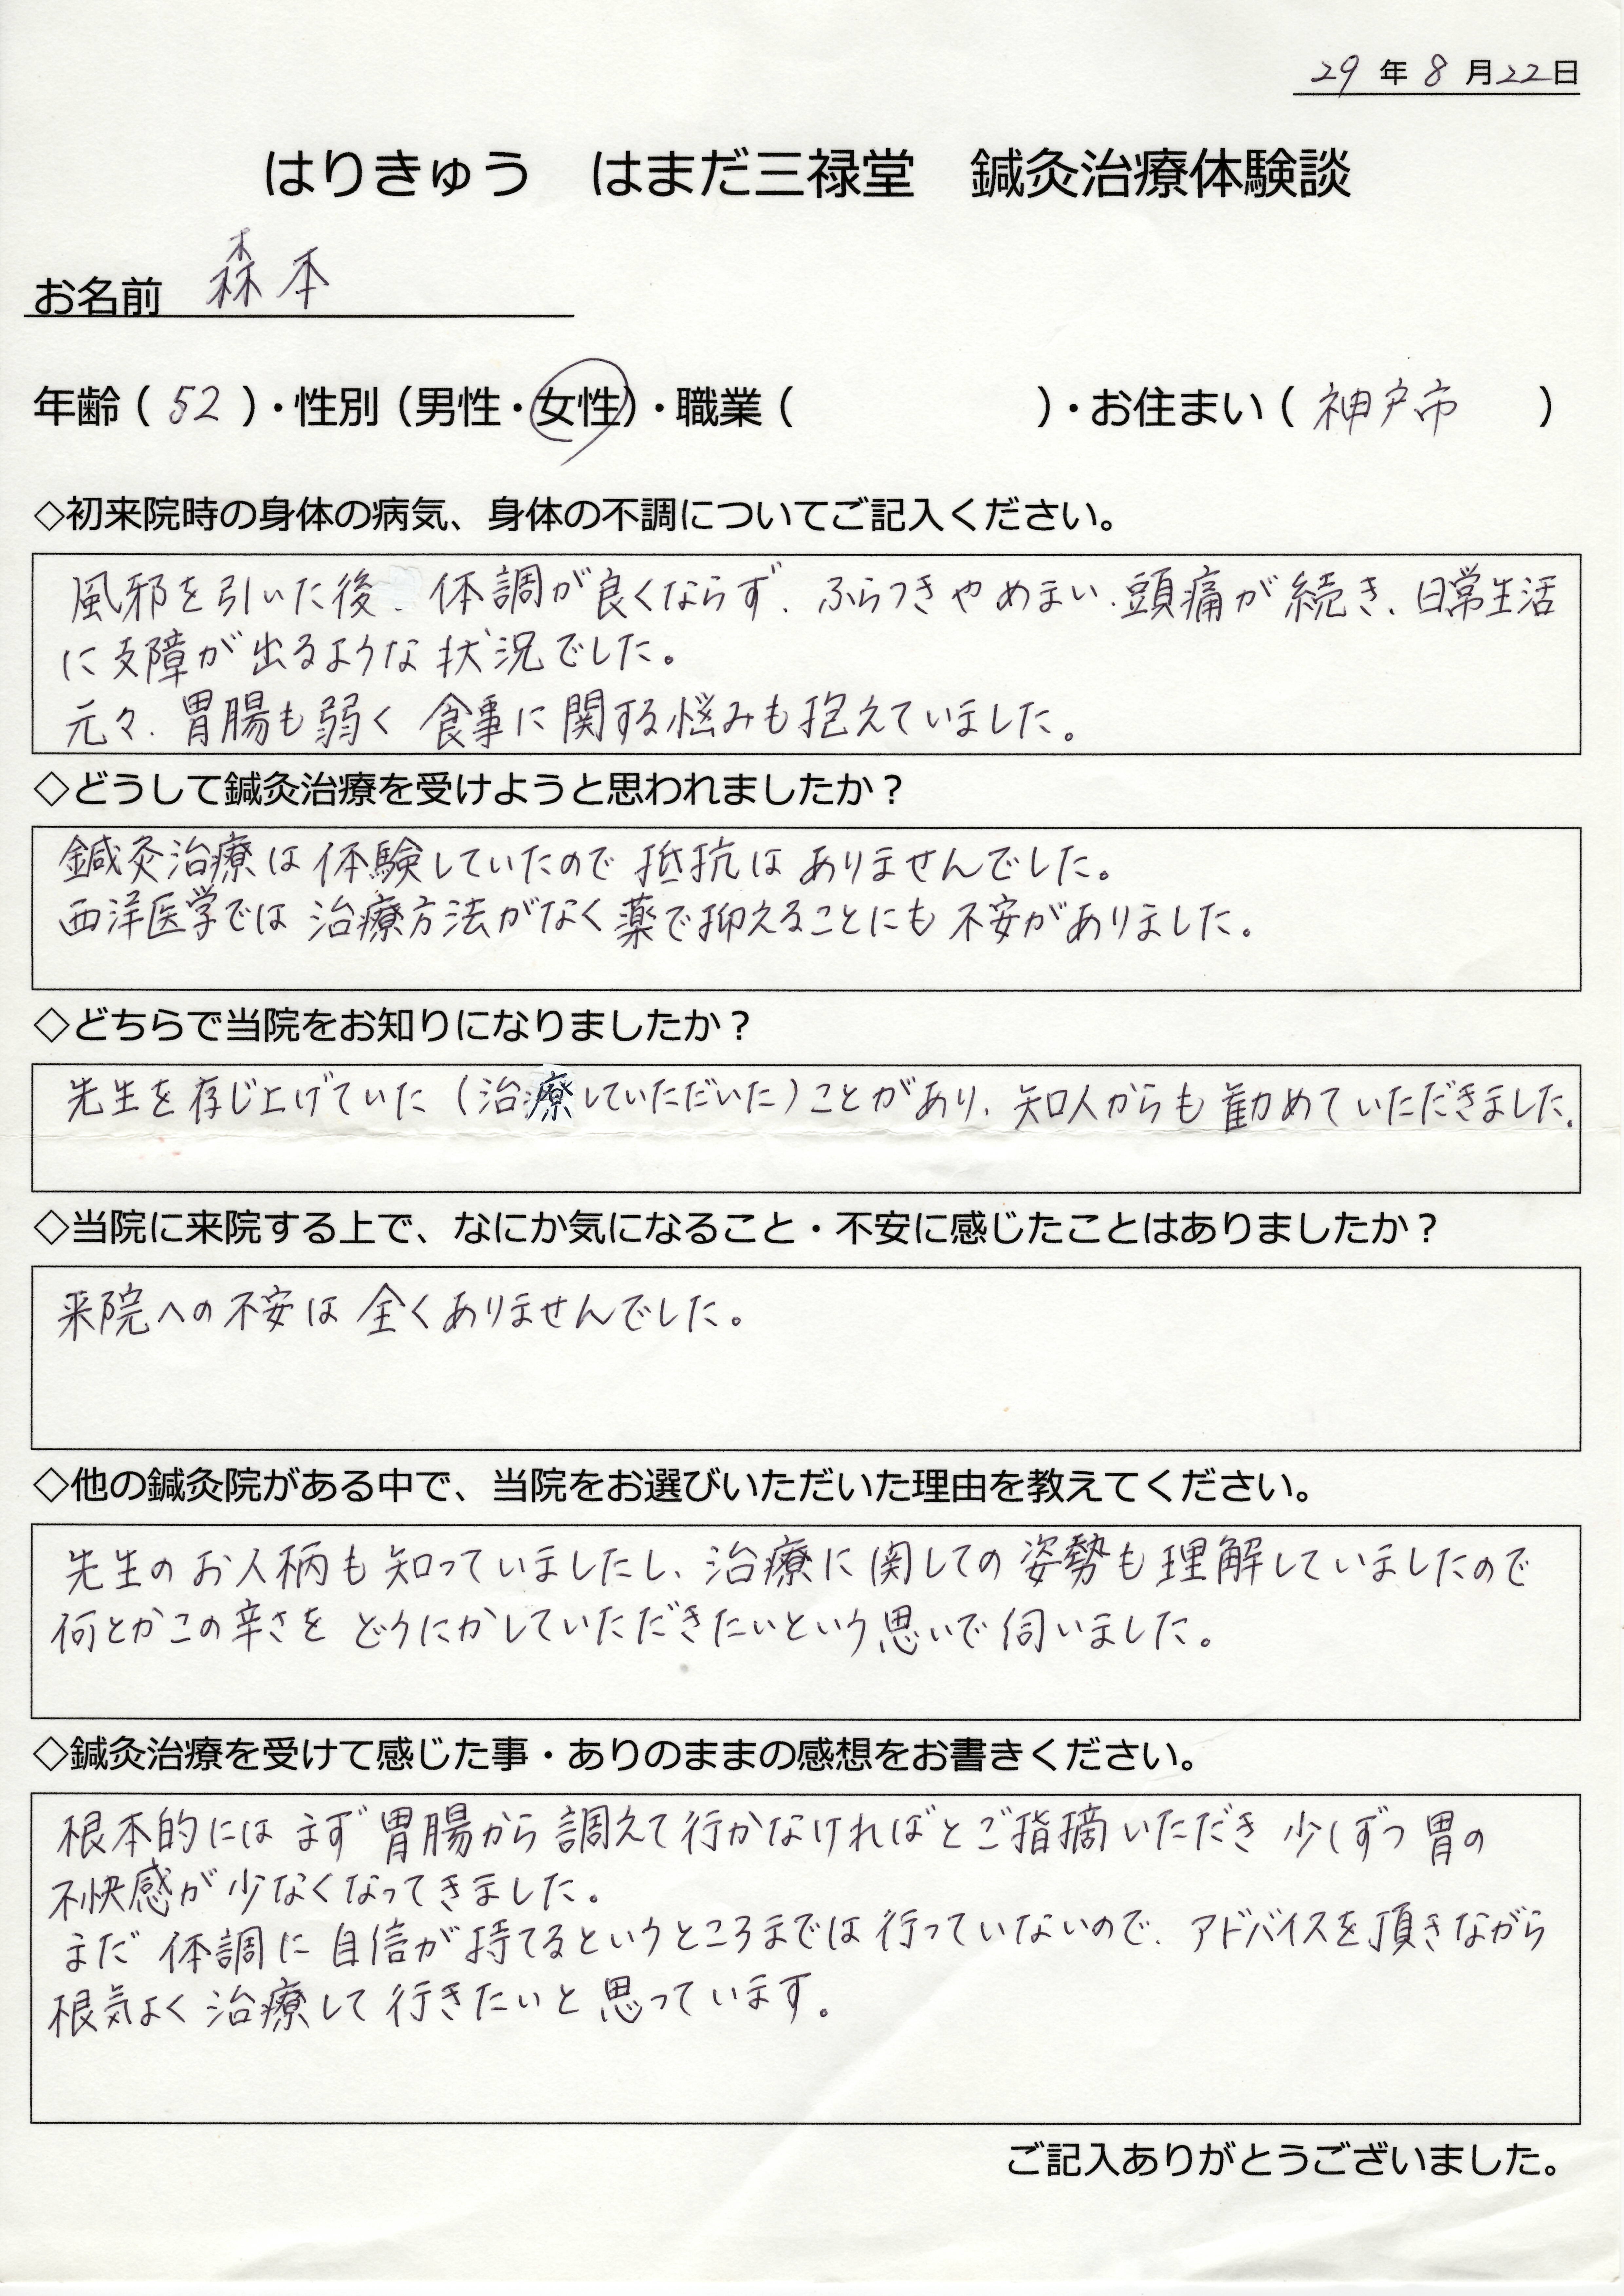 29年8月22日
はりきゅう　はまだ三禄堂　鍼灸治療体験談
お名前 森本
年齢（52）・性別（男性・女性）・職業（　　　　）・お住まい（神戸市　）
◇初来院時の身体の病気、身体の不調についてご記入ください。
風邪を引いた後、体調が良くならず、ふらつきやめまい、頭痛が続き、日常生活
に支障が出るような状況でした。
元々、胃腸も弱く食事に関する悩みも抱えていました。
◇どうして鍼灸治療を受けようと思われましたか？
鍼灸治療は体験していたので抵抗はありませんでした。
西洋医学では治療方法がなく薬で抑えることにも不安がありました。
◇どちらで当院をお知りになりましたか？
先生を存じ上げていた（治療していただいた）ことがあり、知人からも勧めていただきました。
◇当院に来院する上で、なにか気になること・不安に感じたことはありましたか？
来院への不安は全くありませんでした。
◇他の鍼灸院がある中で、当院をお選びいただいた理由を教えてください。
先生のお人柄も知っていましたし、治療に関しての姿勢も理解していましたので
何とかこの辛さをどうにかしていただきたいという思いで伺いました。
◇鍼灸治療を受けて感じた事・ありのままの感想をお書きください。
根本的にはまず胃腸から調えて行かなければとご指摘いただき少しずつ胃の
不快感が少なくなってきました。
まだ体調に自信が持てるというところまでは行っていないので、アドバイスを頂きながら
根気よく治療して行きたいと思っています。
ご記入ありがとうございました。